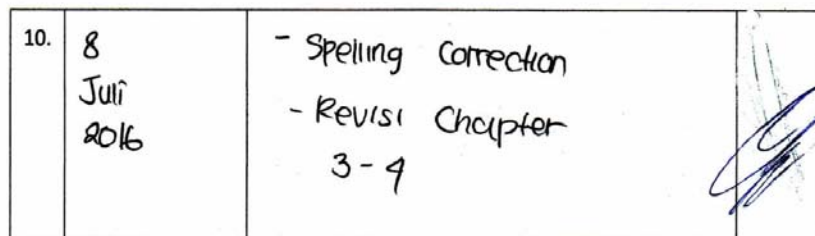 10.
8
Juli
2016
- Spelling Correction
- Revisi Chapter
3-4